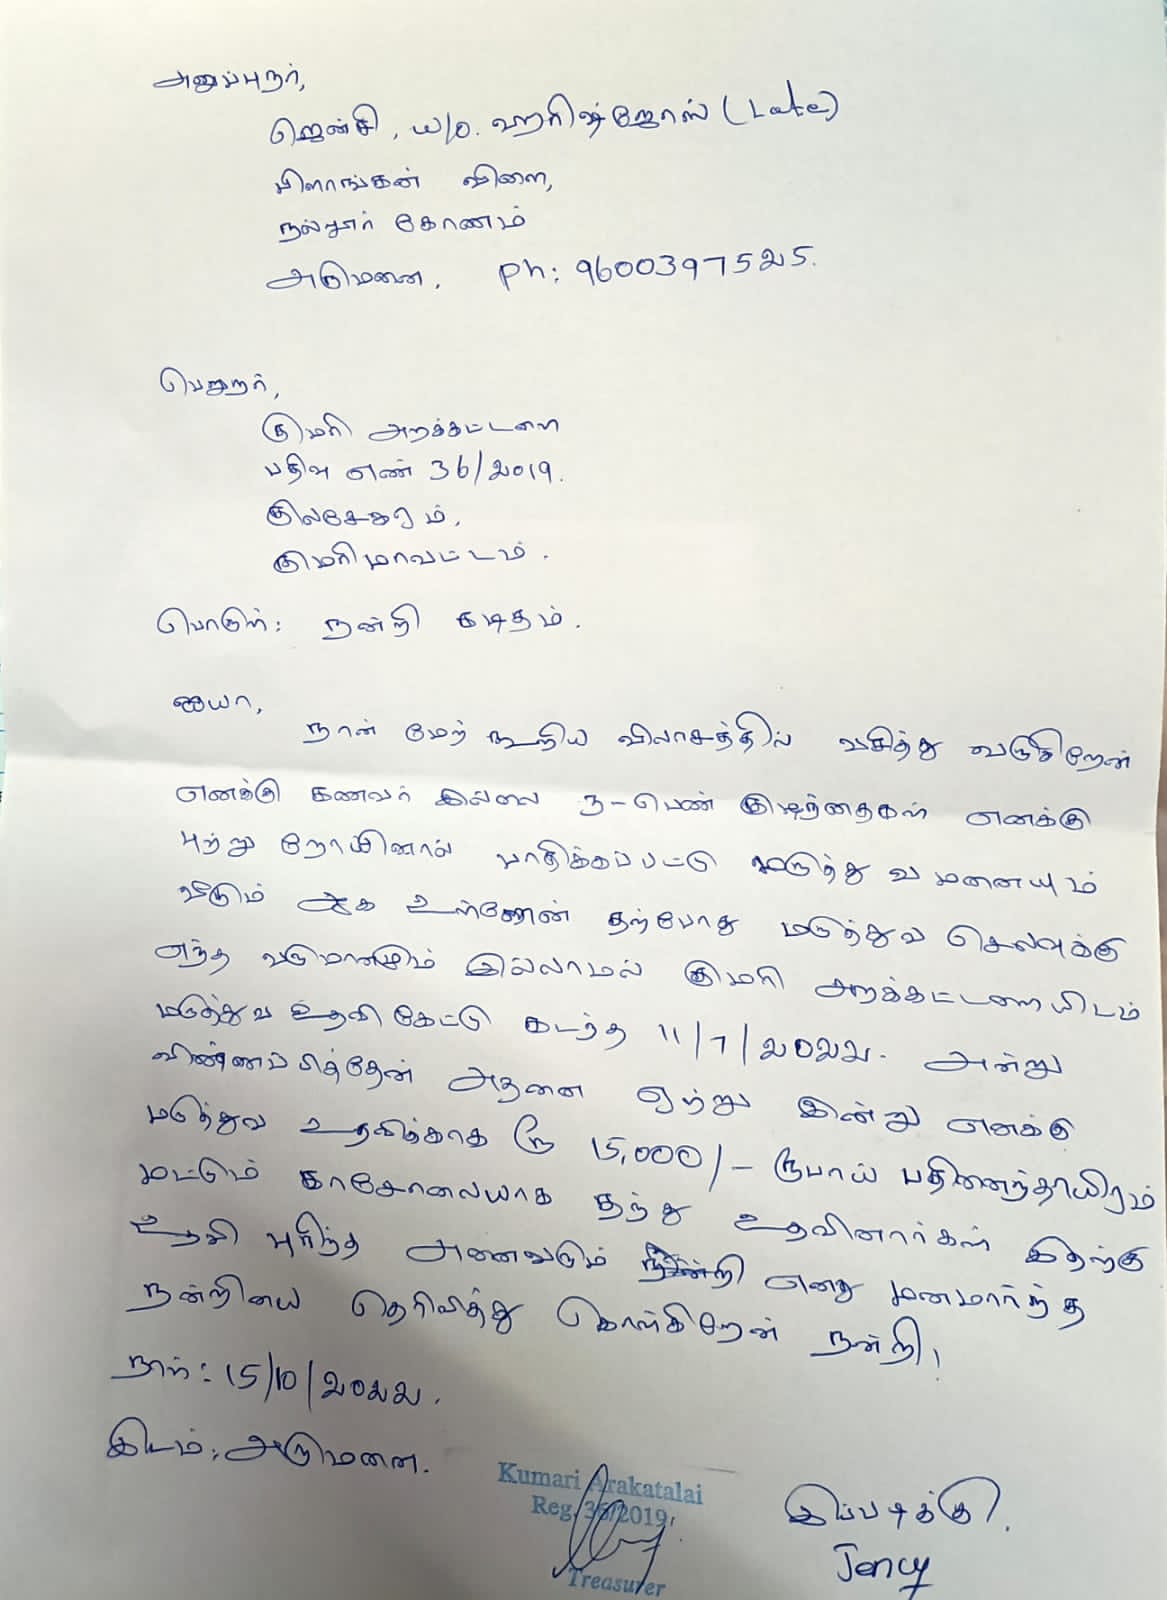 அனுப்புநர்,
ஜென்சி, W/o. ஹரிஷ்ஜோஸ் (Late)
பிளாங்கன் விளை,
நல்லூர் கோணம்
அருமனை, Ph: 9600397525.
பெறுநர்,
குமரி அறக்கட்டளை
பதிவு எண் 36/2019.
குலசேகரம்,
குமரிமாவட்டம்.
பொருள்: நன்றி கடிதம்.
ஐயா,
நான் மேற் கூறிய விலாசத்தில் வசித்து வருகிறேன்
எனக்கு கணவர் இல்லை 3-பெண் குழந்தைகள் எனக்கு
புற்று நோயினால் பாதிக்கப்பட்டு மருத்துவ மனையும்
வீடும் ஆக உள்ளேன் தற்போது மருத்துவ செலவுக்கு
எந்த வருமானமும் இல்லாமல் குமரி அறக்கட்டளையிடம்
மருத்துவ உதவி கேட்டு கடந்த 11/7/2022. அன்று
விண்ணப்பித்தேன் அதனை ஏற்று இன்று எனக்கு
மருத்துவ உதவிக்காக ரூ 15,000/- ரூபாய் பதினைந்தாயிரம்
மட்டும் காசோலையாக தந்து உதவினார்கள் இதற்கு
உதவி புரிந்த அனைவரும் எனது மனமார்ந்த
நன்றியை தெரிவித்து கொள்கிறேன் நன்றி!
நாள்: 15/10/2022.
இடம்: அருமனை.
Kumari Arakatalai
Reg. 36/2019
Treasurer
இப்படிக்கு,
Jency